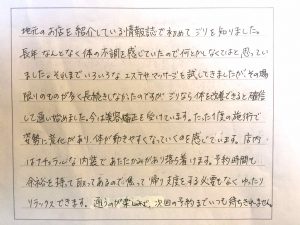 地元のお店を紹介している情報誌で初めてジリを知りました。
長年なんとなく体の不調を感じていたので何とかしなくてはと思ってい
ました。それまでいろいろなエステやマッサージを試してきましたが、その場
限りのものが多く長続きしなかったのですが ジリなら体を改善できると確信
して通い始めました。今は美容矯正を受けています。たった1度の施術で
姿勢に変化があり、体が動きやすくなっていくのを感じています。店内
はナチュラルな内装であたたかみがあり落ち着けます。予約時間も
余裕を持って取ってあるので焦って帰り支度をする必要もなくゆったり
リラックスできます。通うのが楽しみで、次回の予約までいつも待ちきれません。